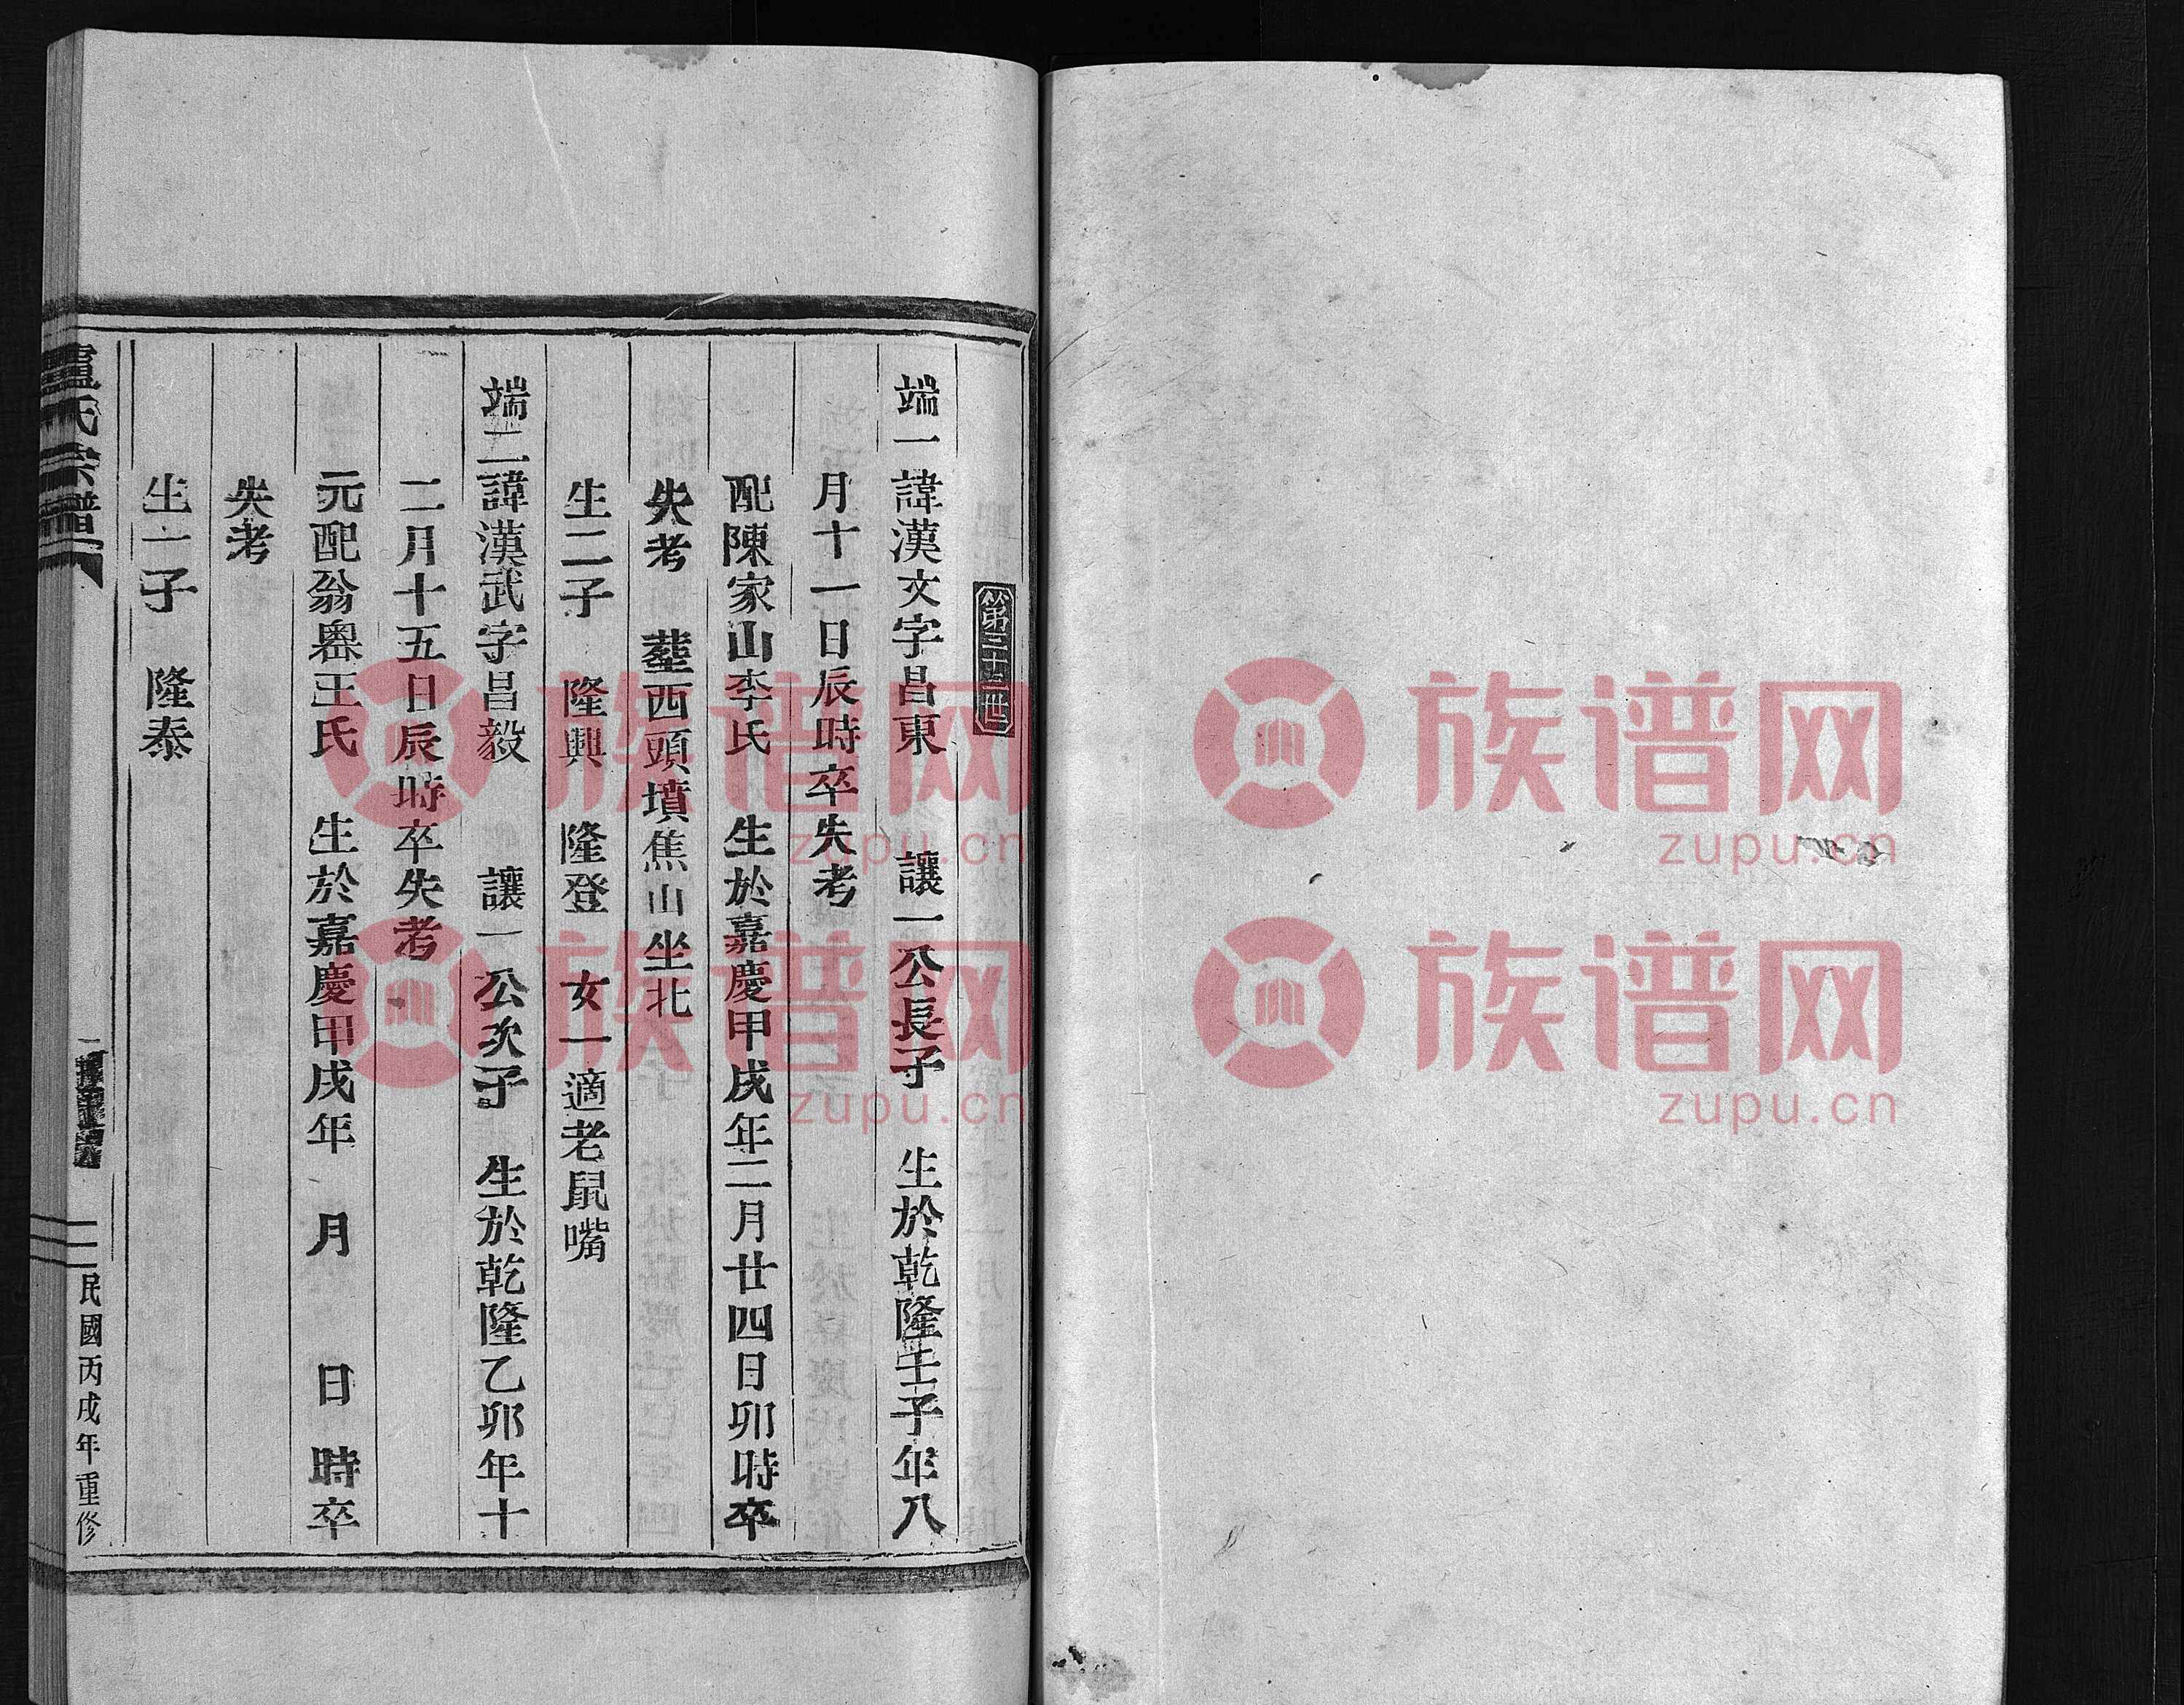 第三十五世
端一諱漢文字昌東　讓一公長子　生於乾隆壬子年八
月十一日辰時卒失考
配陳家山李氏　生於嘉慶甲戌年二月廿四日卯時卒
失考　塟西頭墳焦山坐北
生二子　隆興　隆登　女一適老鼠嘴
端二諱漢武字昌毅　讓一公次子　生於乾隆乙卯年十
二月十五日辰時卒失考
元配翁嶴王氏　生於嘉慶甲戌年　月　日　時卒
失考
生一子　隆泰
盧氏宗譜
民國丙戌年重修
族谱网
zupu.cn
族谱网
zupu.cn
族谱网
zupu.cn
族谱网
zupu.cn